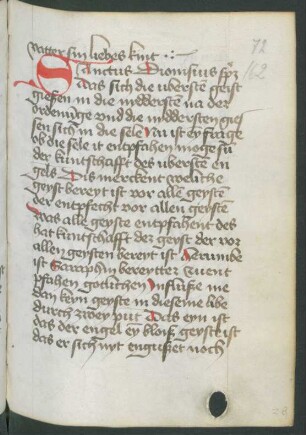 vatter sin liebes kint
72
162
Sanctus Dionisius spz
daas sich die ubersten geist
giessen in die niddersten na der
ordenu͂ge vnd die niddersten gies
sen sich in die sele Nu ist ey frage
ob die sele it entpfahen moge fu͂
der kuntschafft des ubersten en
gels Dis merckent weliche
geyst bereyt ist vor alle͂ geyste͂
der entpfecht vor allen geyste͂
was alle geyste entpfahent des
hat kuntschafft der geyst der vor
allen geysten bereyt ist Daru͂be
ist Saraphin bereytter zu ent
pfahen gotlichen Influsse me
dan kein geyste in dieseme libe
durch zwey put Das eyn ist
das der engel ey bloiss geyst ist
das er sich nyt engusset noch